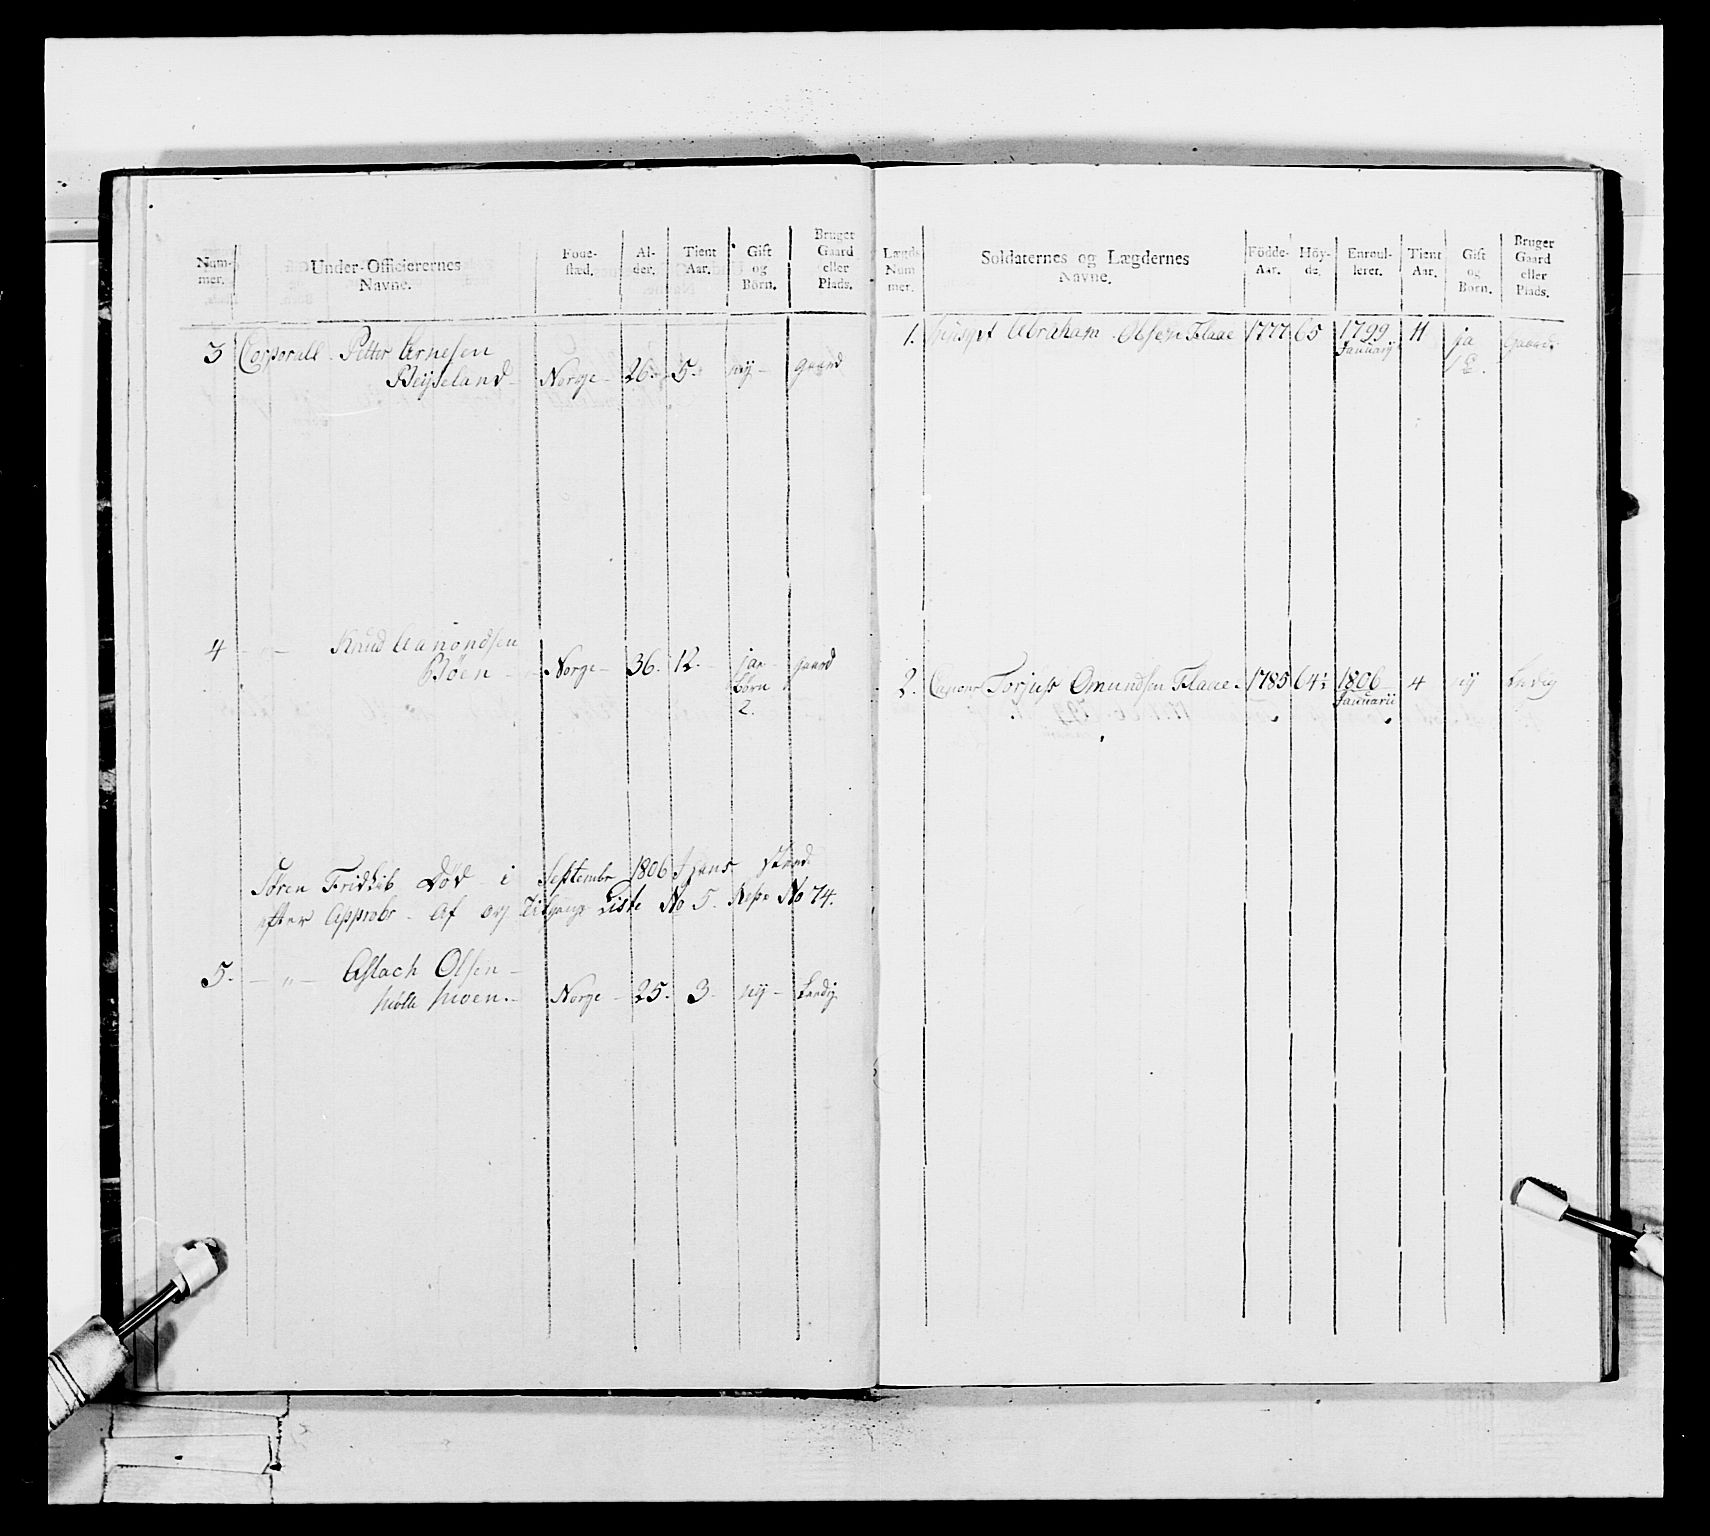 Num-
mer.
Under-Officierernes
Navne.
Føde-
stæd.
Al-
der.
Tient
Aar.
Gift
og
Børn.
Bruger
Gaard
eller
Plads.
3 Corporall Petter Arnesen
Beyseland - Norge - 26. 5. ny - gaard
4 - " - Knud Aamondsen
Bøen - Norge - 36. 12. - ja - gaard
børn
2.
Søren Død i Septembr 1806
efter Approbr. Af Liste No 5. No 74.
5. - " - Aslach Olsen -
moen. - Norge - 25. 3. ny - Ledig
Lægds
Num
mer.
Soldaternes og Lægdernes
Navne.
Födde-
Aar.
Höy-
de.
Enroul-
leret.
Tient
Aar.
Gift
og
Børn.
Bruger
Gaard
eller
Plads.
1. Abraham Olsen Flaae 1777 65 1799 11 ja Gaard.
Januarij
2. Torjuss Omundsen Flaae 1785 64½ 1806 4 ny Ledig
Januarii